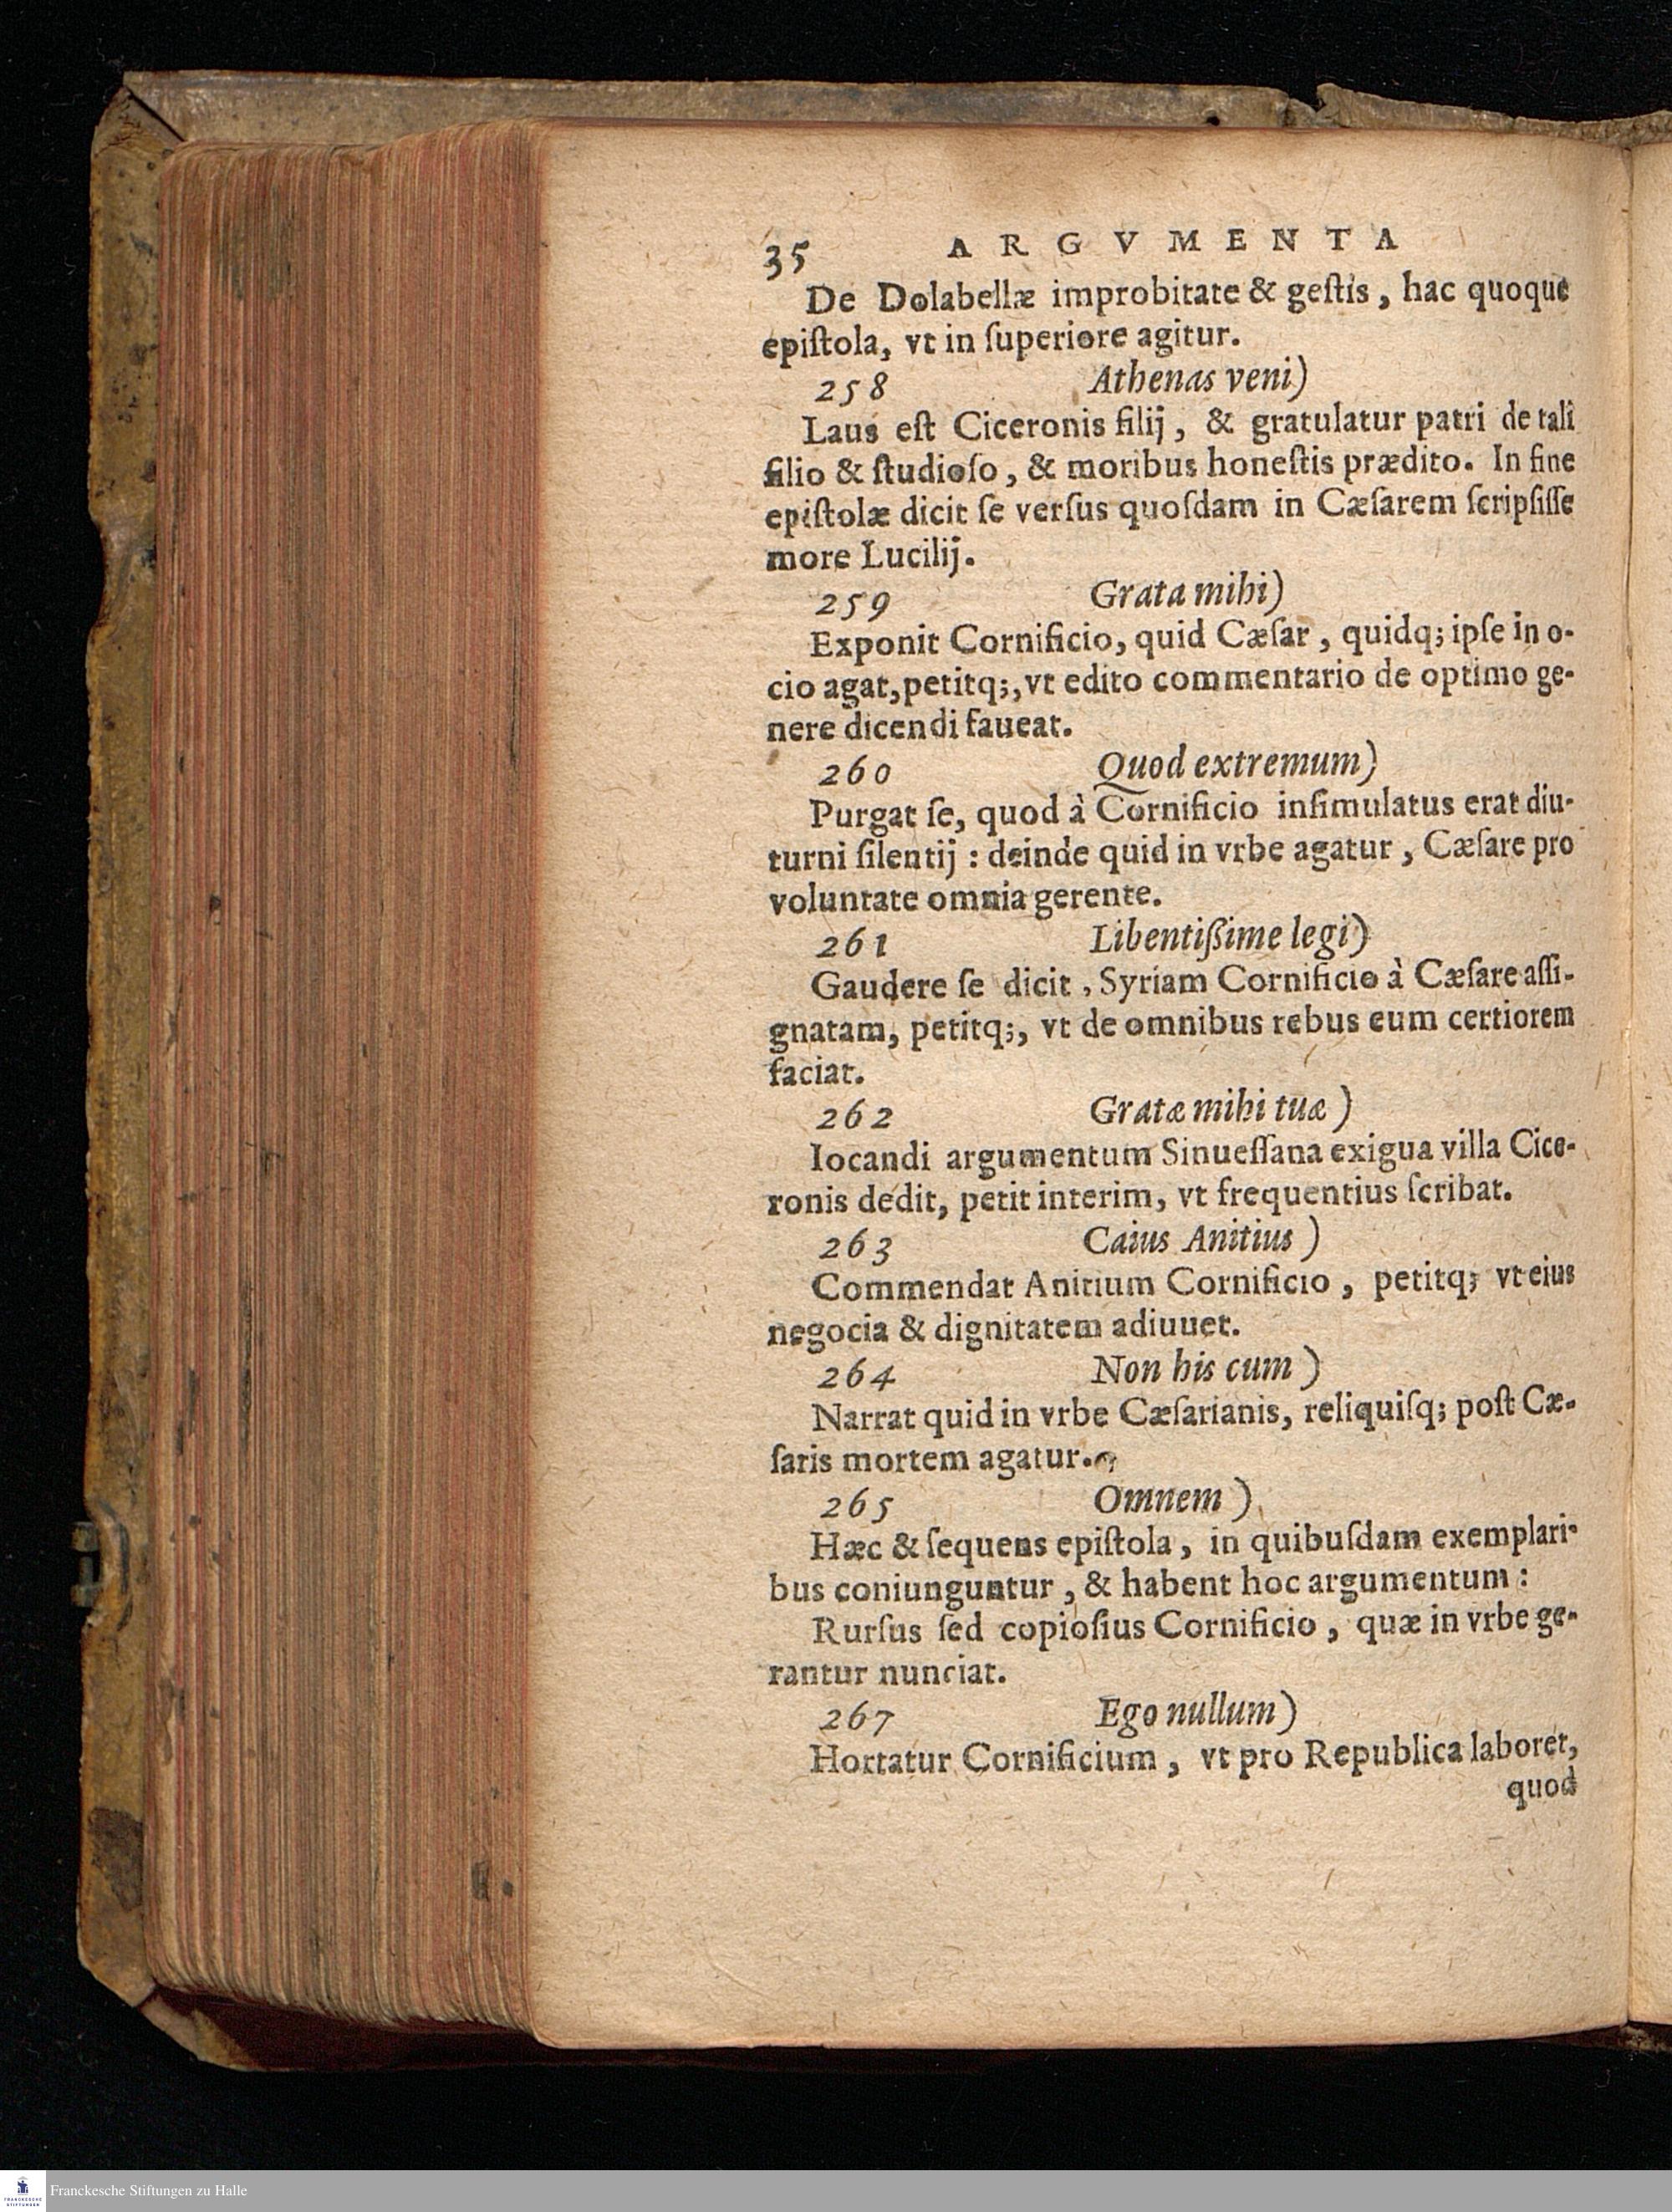 35 ARGVMENTA
De Dolabellæ improbitate & geſtis, hac quoque
epiſtola, vt in ſuperiore agitur.
258 Athenas veni)
Laus eſt Ciceronis filij, & gratulatur patri de tali
filio & ſtudioſo, & moribus honeſtis prædito. In fine
epiſtolæ dicit ſe verſus quoſdam in Cæſarem ſcripſiſſe
more Lucilij.
259 Grata mihi)
Exponit Cornificio, quid Cæſar, quidq; ipſe in o-
cio agat, petitq;, vt edito commentario de optimo ge-
nere dicendi faueat.
260 Quod extremum)
Purgat ſe, quod à Cornificio inſimulatus erat diu-
turni ſilentij : deinde quid in vrbe agatur, Cæſare pro
voluntate omnia gerente.
261 Libentißime legi)
Gaudere ſe dicit, Syriam Cornificio à Cæſare aſſi-
gnatam, petitq;, vt de omnibus rebus eum certiorem
faciat.
262 Gratæ mihi tuæ)
Iocandi argumentum Sinueſſana exigua villa Cice-
ronis dedit, petit interim, vt frequentius ſcribat.
263 Caius Anitius)
Commendat Anitium Cornificio, petitq; vt eius
negocia & dignitatem adiuuet.
264 Non his cum)
Narrat quid in vrbe Cæſarianis, reliquiſq; poſt Cæ-
ſaris mortem agatur.
265 Omnem)
Hæc & ſequens epiſtola, in quibuſdam exemplari-
bus coniunguntur, & habent hoc argumentum :
Rurſus ſed copioſius Cornificio, quæ in vrbe ge-
rantur nunciat.
267 Ego nullum)
Hortatur Cornificium, vt pro Republica laboret,
quod
FRANCKESCHE STIFTUNGEN
Franckesche Stiftungen zu Halle